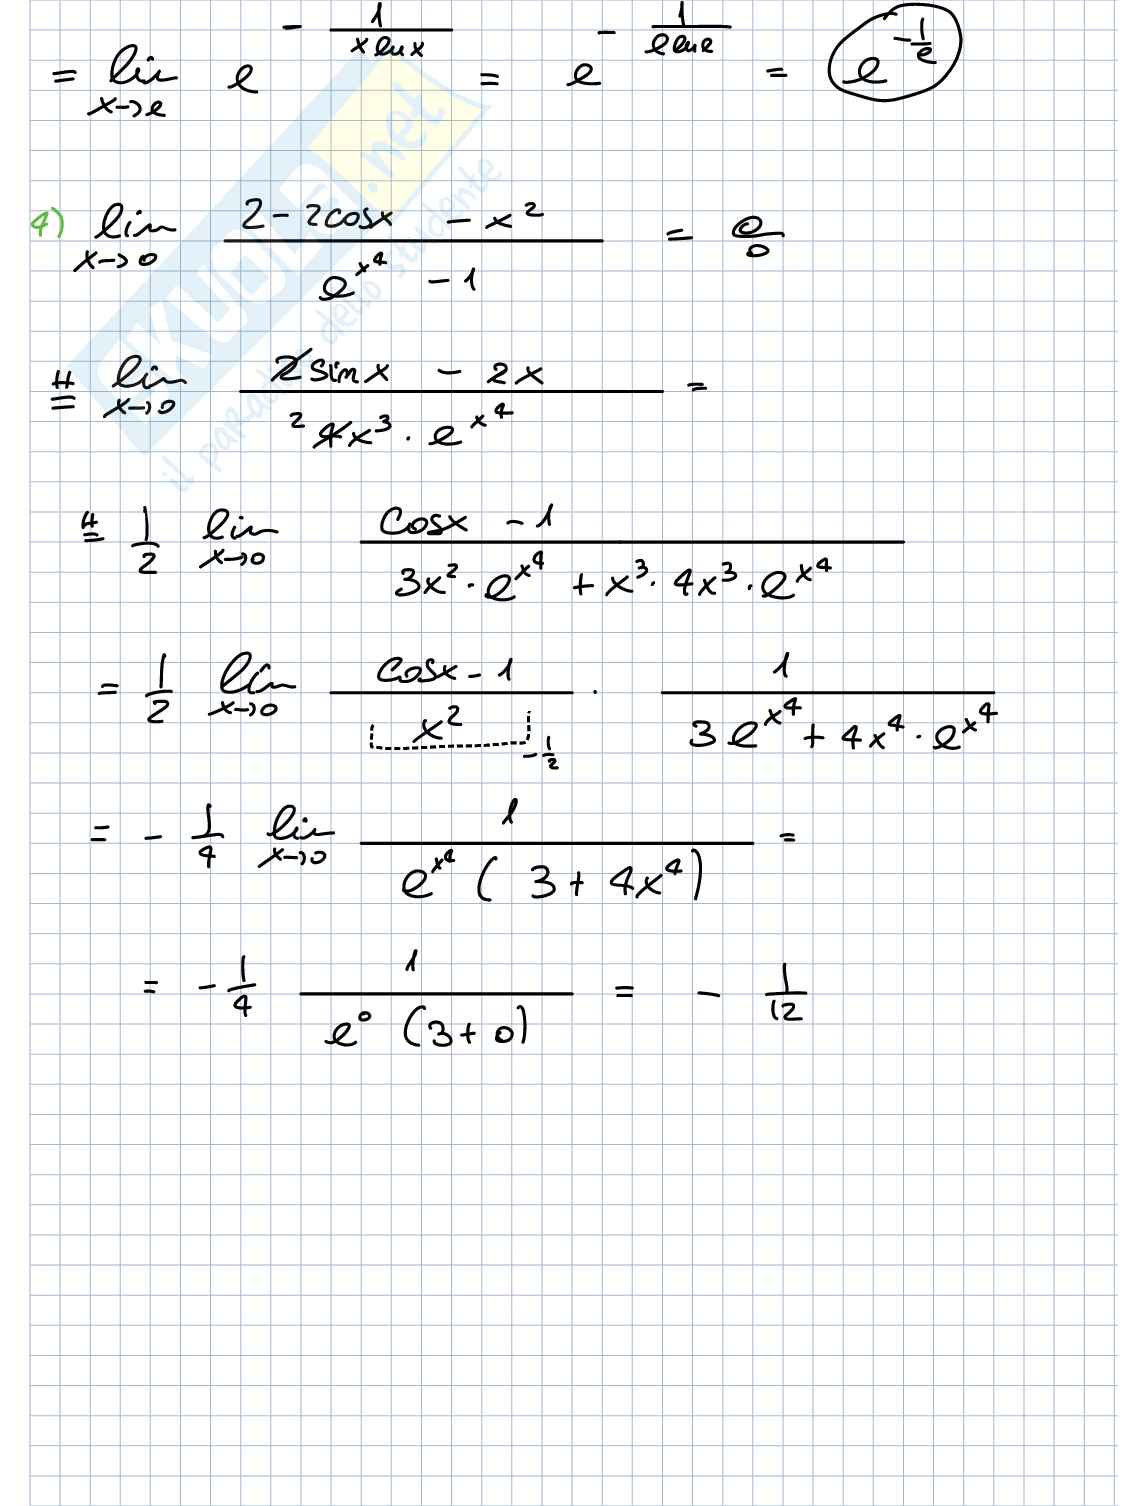 = lim x→e e^(- 1/(x ln x)) = e^(- 1/(e ln e)) = e^(-1/e)
4) lim x→0 (2 - 2cosx - x^2)/(e^(x^4) - 1) = 0/0
H= lim x→0 (2 sin x - 2x)/(2 4x^3 · e^(x^4)) =
H= 1/2 lim x→0 (cosx - 1)/(3x^2 · e^(x^4) + x^3 · 4x^3 · e^(x^4))
= 1/2 lim x→0 (cosx - 1)/x^2 · 1/(3e^(x^4) + 4x^4 · e^(x^4))
-1/2
= - 1/4 lim x→0 1/(e^(x^4) (3 + 4x^4)) =
= - 1/4 1/(e^0 (3 + 0)) = - 1/12
SKUOLA.net
il paradiso dello studente